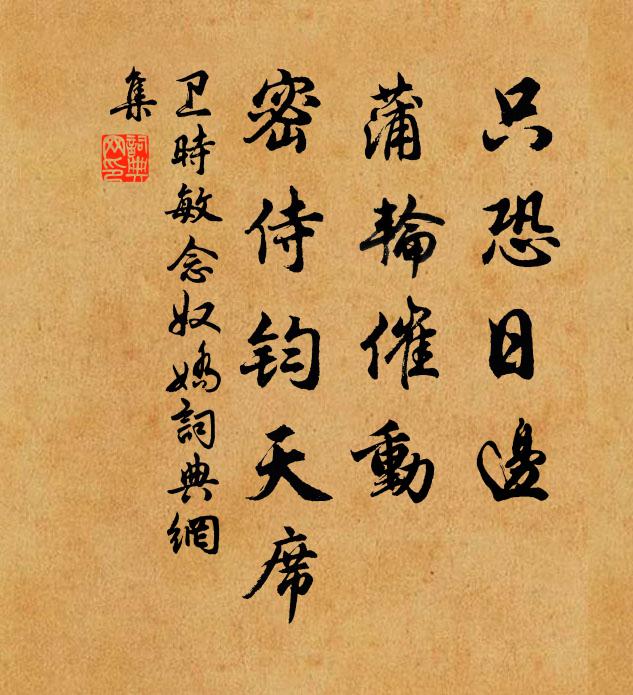 只恐日邊
蒲輪催動
密侍鈞天席
卫時敏念奴嬌詞典網
集
詞典
网印